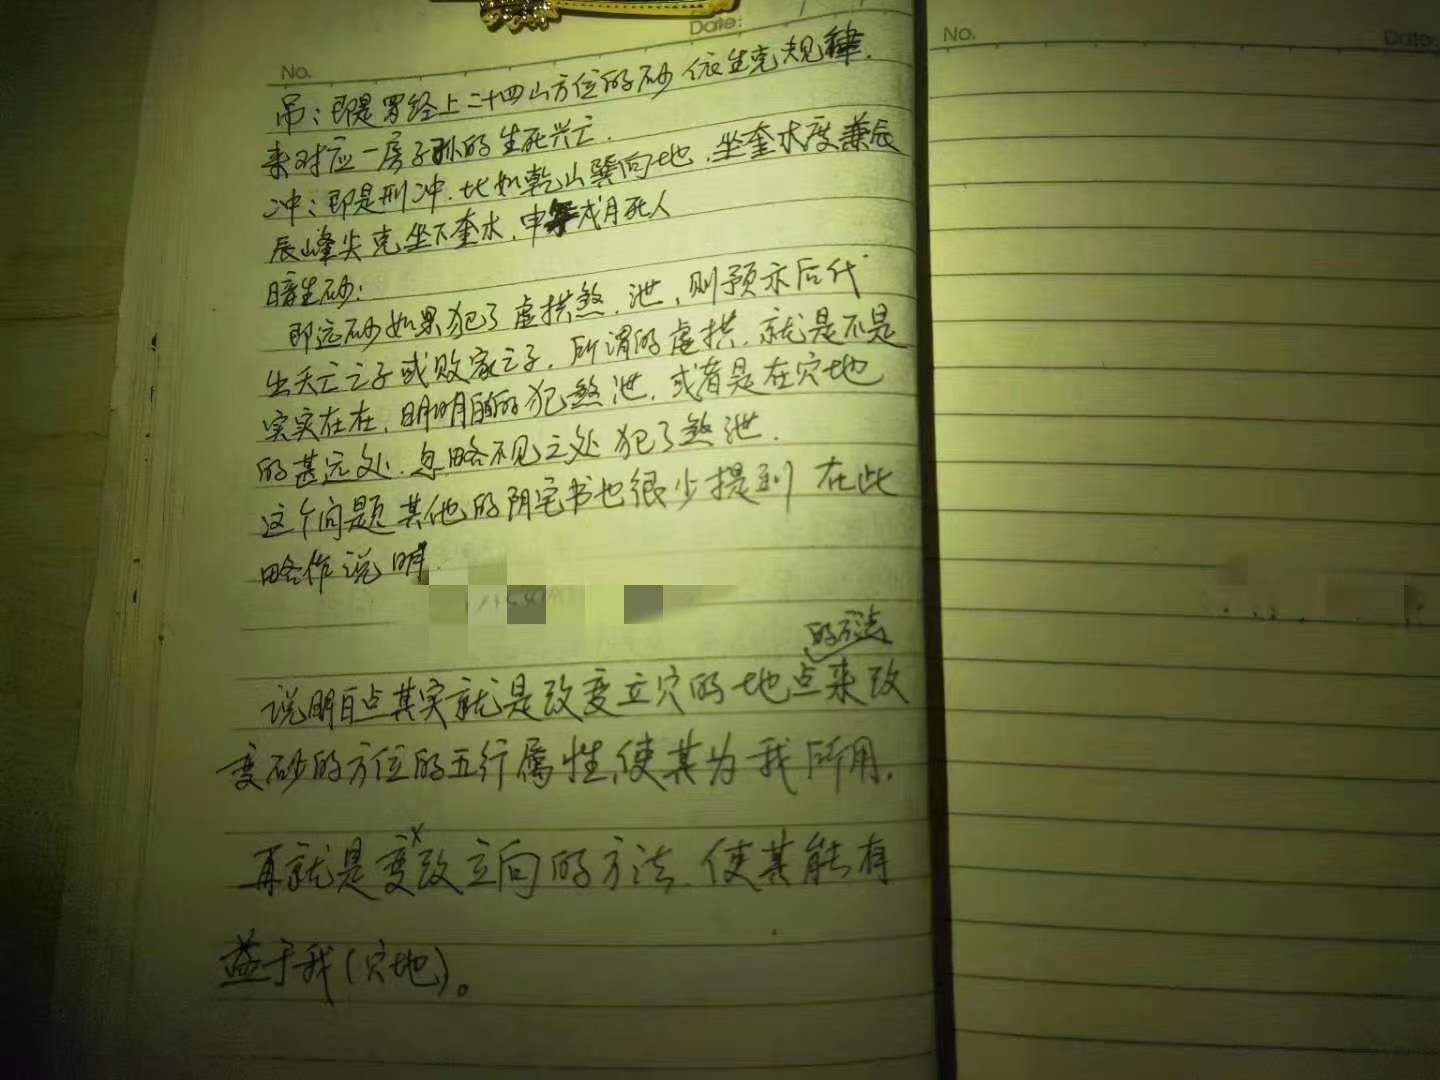 Date:
No.
吊：即是罗经上二十四山方位的砂依生克规律.
来对应一房子孙的生死兴亡.
冲：即是刑冲.比如乾山巽向地.坐奎木度兼辰
辰峰尖克坐下奎木.申年戌月死人
暗生砂：
即远砂如果犯了虚拱煞.泄.则预示后代
出夭亡之子或败家之子.所谓的虚拱.就是不是
实实在在.明明白白的犯煞泄.或者是在穴地
的甚远处.忽略不见之处犯了煞泄.
这个问题其他的阴宅书也很少提到 在此
略作说明.
的方法
说明白点其实就是改变立穴的地点来改
变砂的方位的五行属性,使其为我所用.
再就是变改立向的方法.使其能有
益于我(穴地)。
No.
Date: